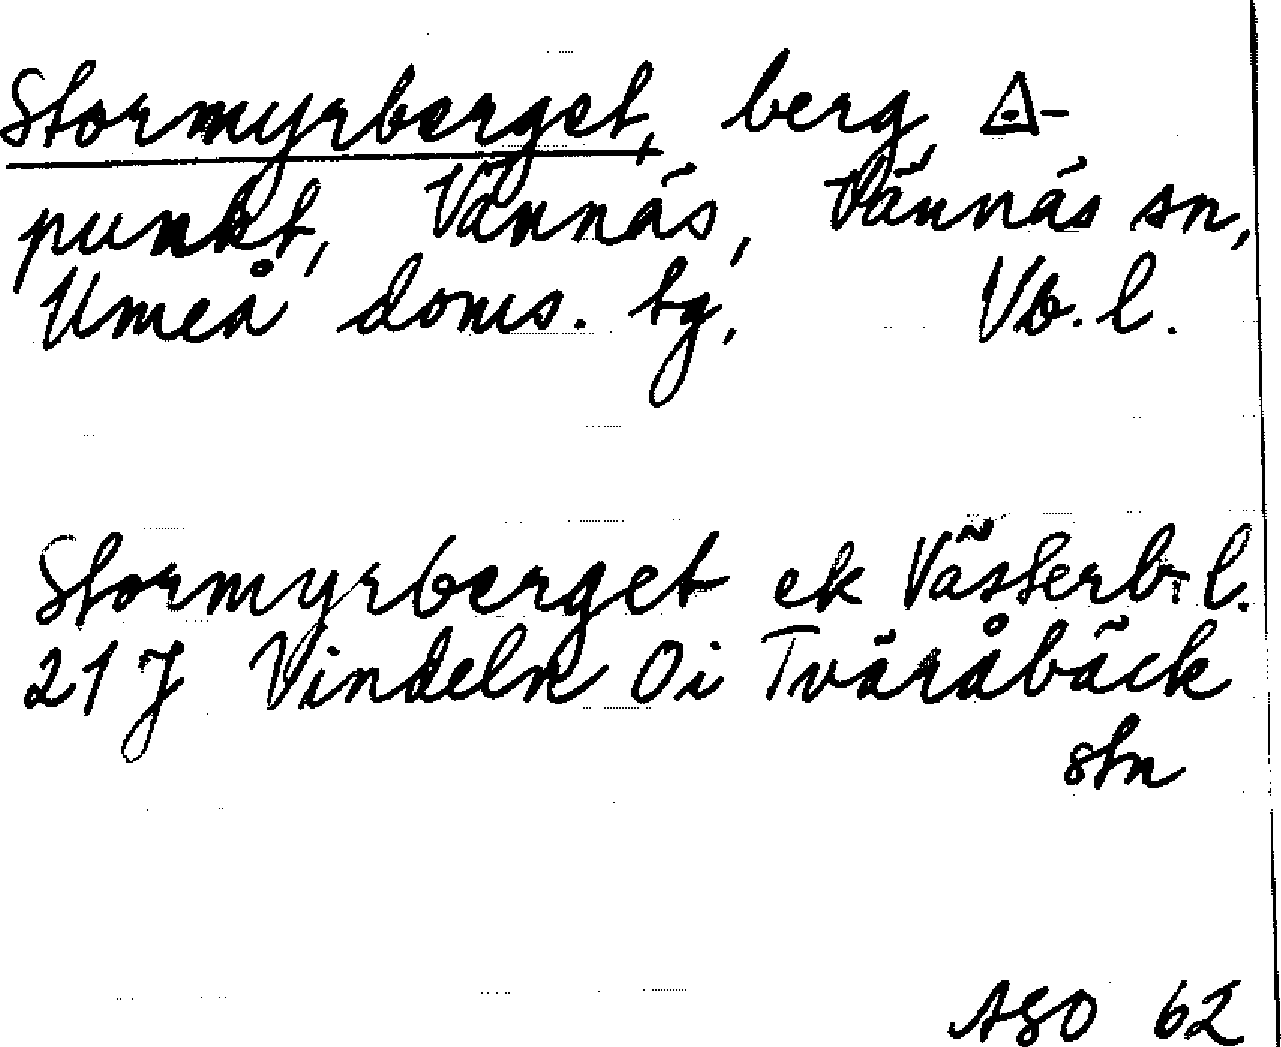 Stormyrberget, berg △-
punkt, Vännäs, Vännäs sn,
Umeå doms. tg, Vb. l.
Stormyrberget ek Västerb. l.
21 J Vindeln 0i Tväråbäck
stn
ASO 62